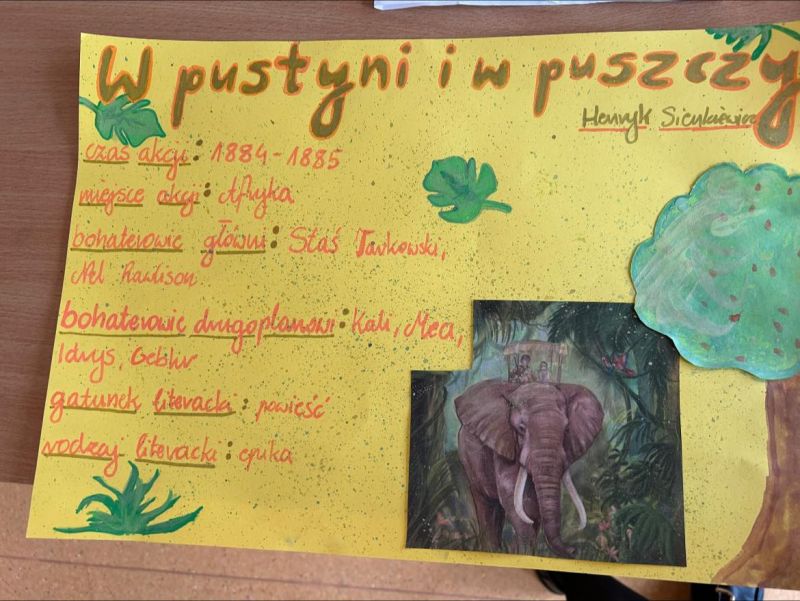 W pustyni i w puszczy
Henryk Sienkiewicz
czas akcji: 1884-1885
miejsce akcji: Afryka
bohaterowie główni: Staś Tarkowski,
Nel Rawlison
bohaterowie drugoplanowi: Kali, Mea,
Idrys, Gebhr
gatunek literacki: powieść
rodzaj literacki: epika